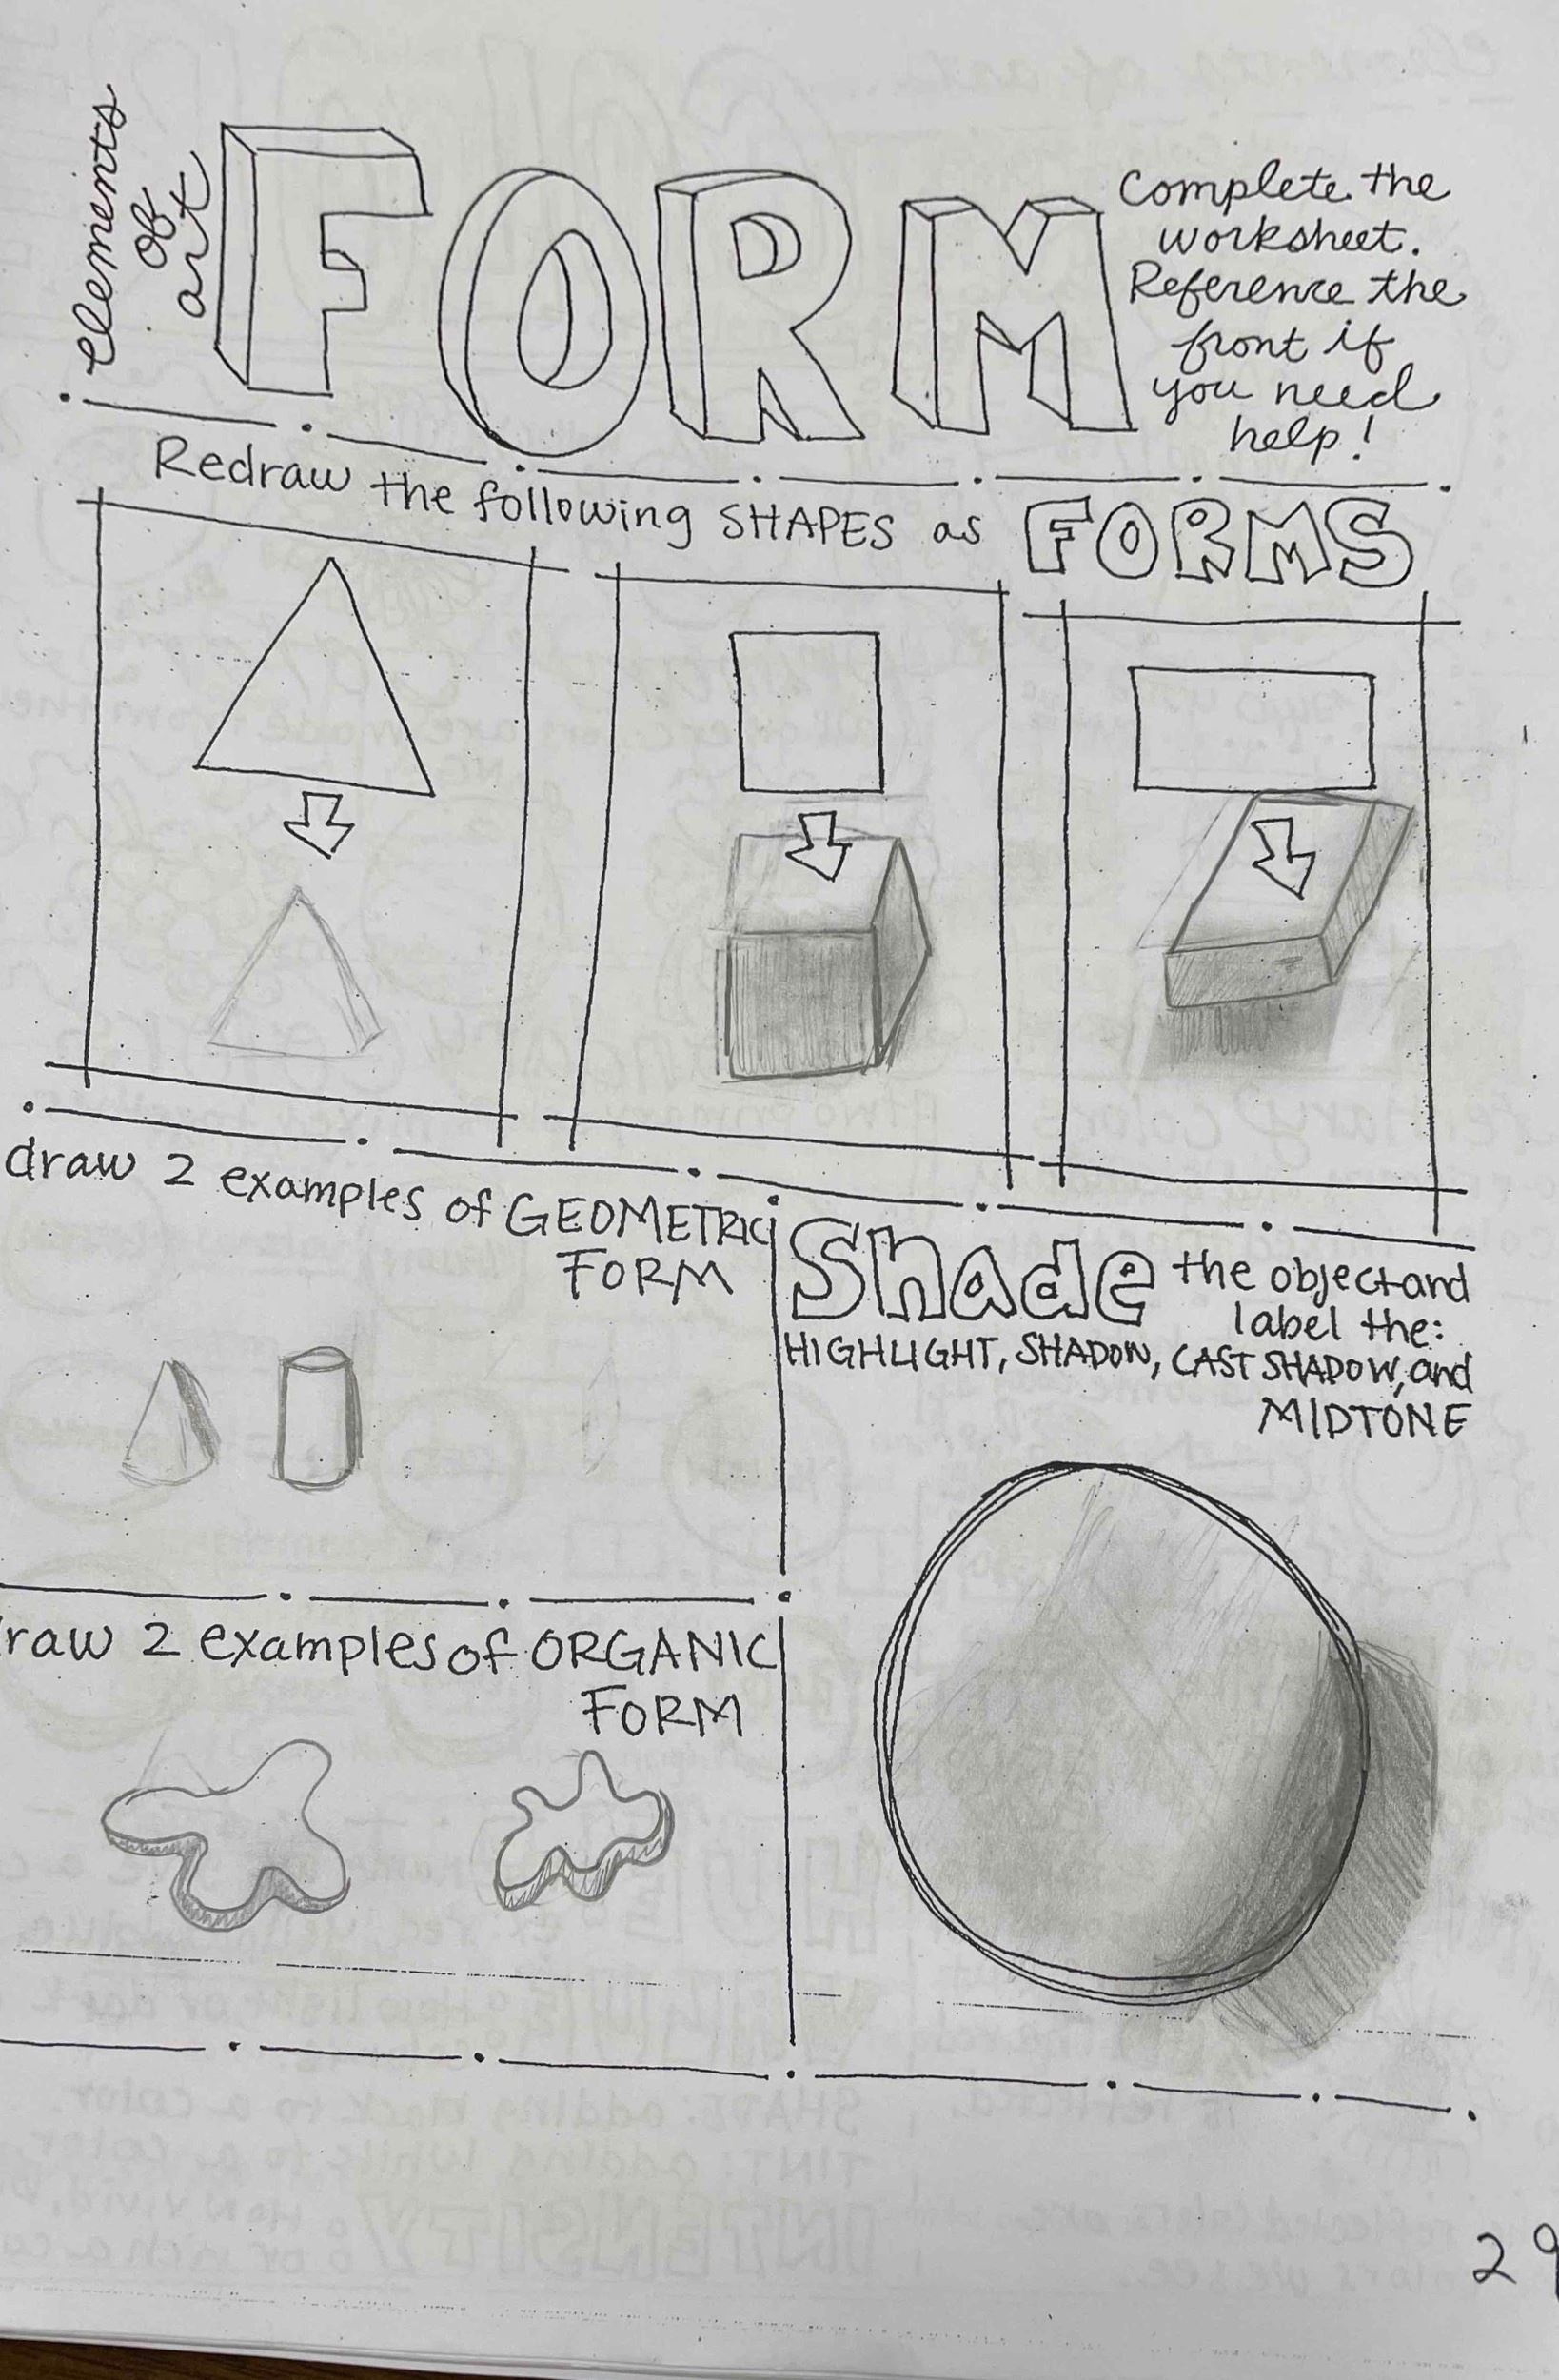 elements
of
art
FORM
Complete the
worksheet.
Reference the
front if
you need
help!
Redraw the following SHAPES as FORMS
draw 2 examples of GEOMETRIC
FORM
Shade the object and
label the:
HIGHLIGHT, SHADOW, CAST SHADOW, and
MIDTONE
raw 2 examples of ORGANIC
FORM
29